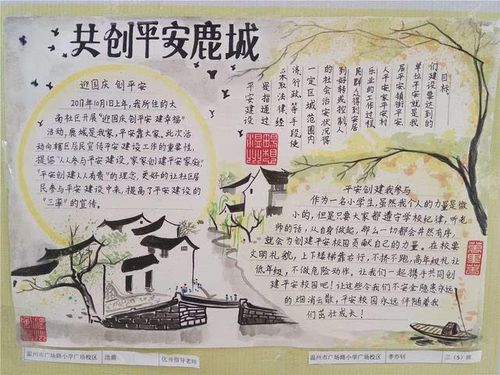 共创平安鹿城
迎国庆 创平安
2011年10月1日上午,我所住的大
南社区开展"迎国庆创平安建幸福"
活动,鹿城是我家,平安靠大家。此次活
动向辖区居民宣传平安建设工作的重要性,
提倡"人人参与平安建设,家家创建平安家庭"
"平安创建人人有责"的理念,更好的让社区居
民参与平安建设中来,提高了平安建设的
"三率"的宣传。
平安建设
是指通过
采取法律、经
济、行政等手段使
一定区域范围内
的社会治安状况得
到好转或控制人
民群众得到安居
乐业的工作过程。
人平安家平安村
居平安镇街平安
单位平安就是我
们建设要达到的
目标。
平安创建我参与
作为一名小学生,虽然我个人的力量是微
小的,但是只要大家都遵守学校纪律,听老
师的话,从自身做起,那么一切都会井然有序,
就会为创建平安校园贡献自己的力量。在校要
文明礼貌,上下楼梯靠右行,不挤不跑,高年级礼让
低年级,不做危险动作,让我们一起携手共同创
建平安校园吧!让这些令我们不安全隐患永远
的烟消云散,平安校园永远伴随着我
们茁壮成长!
温州市广场路小学广场校区
优秀指导老师
温州市广场路小学广场校区
三(5)班